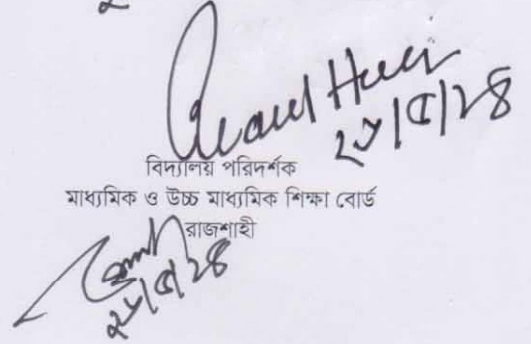 ২৮/৫/২৪
বিদ্যালয় পরিদর্শক
মাধ্যমিক ও উচ্চ মাধ্যমিক শিক্ষা বোর্ড
রাজশাহী
২৮/৫/২৪